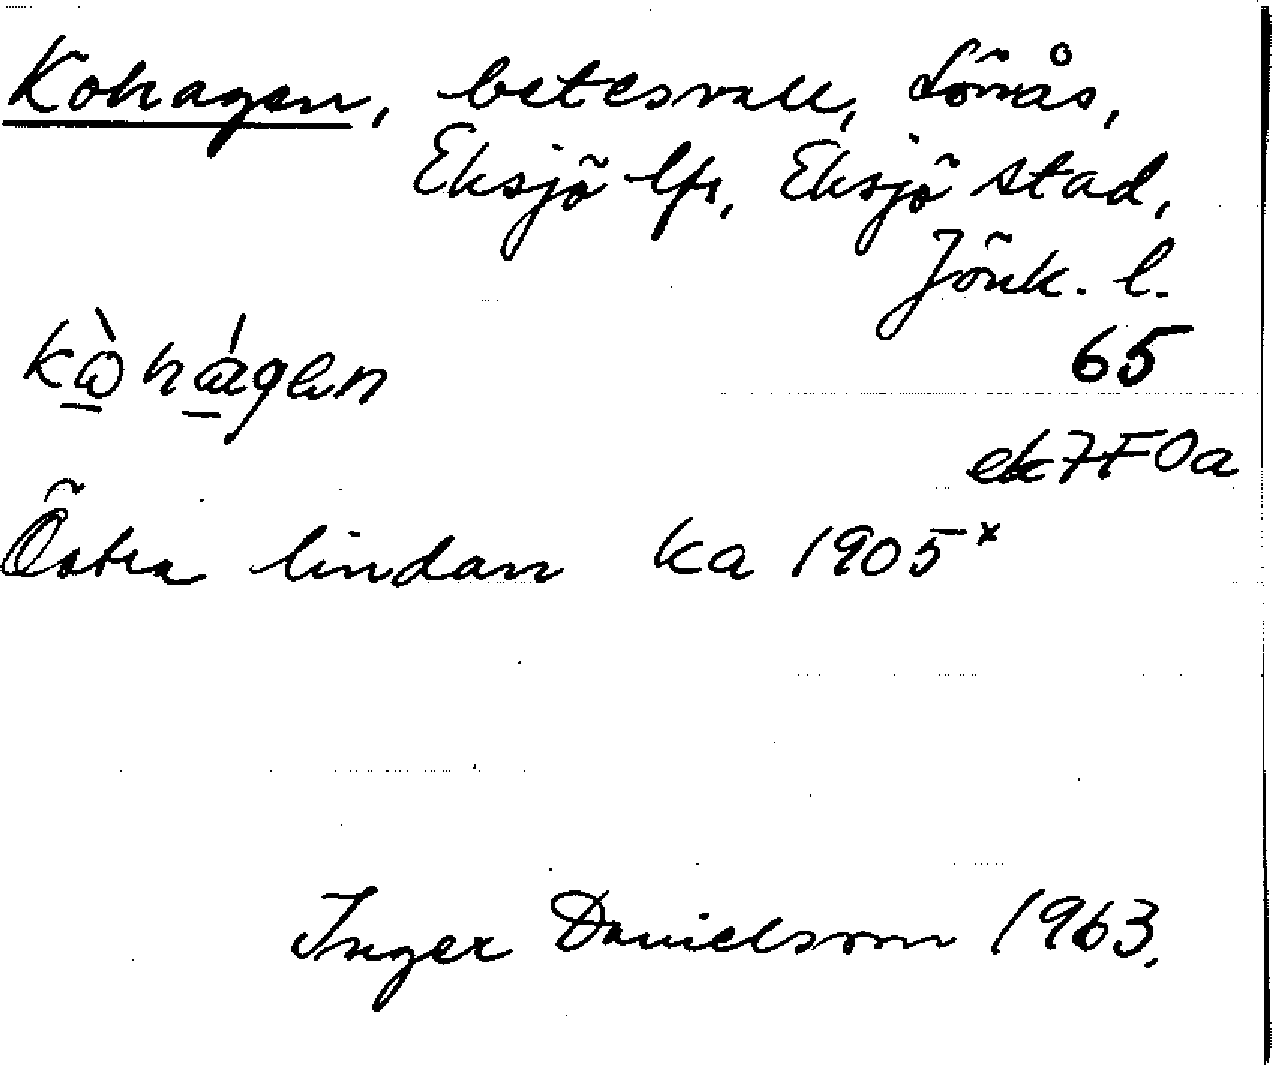 Kohagen, betesvall, Lönås,
Eksjö lfs, Eksjö stad,
Jönk. l.
kòhágen
65
ek7F0a
Östra lindan ka 1905 x
Inger Danielsson 1963.